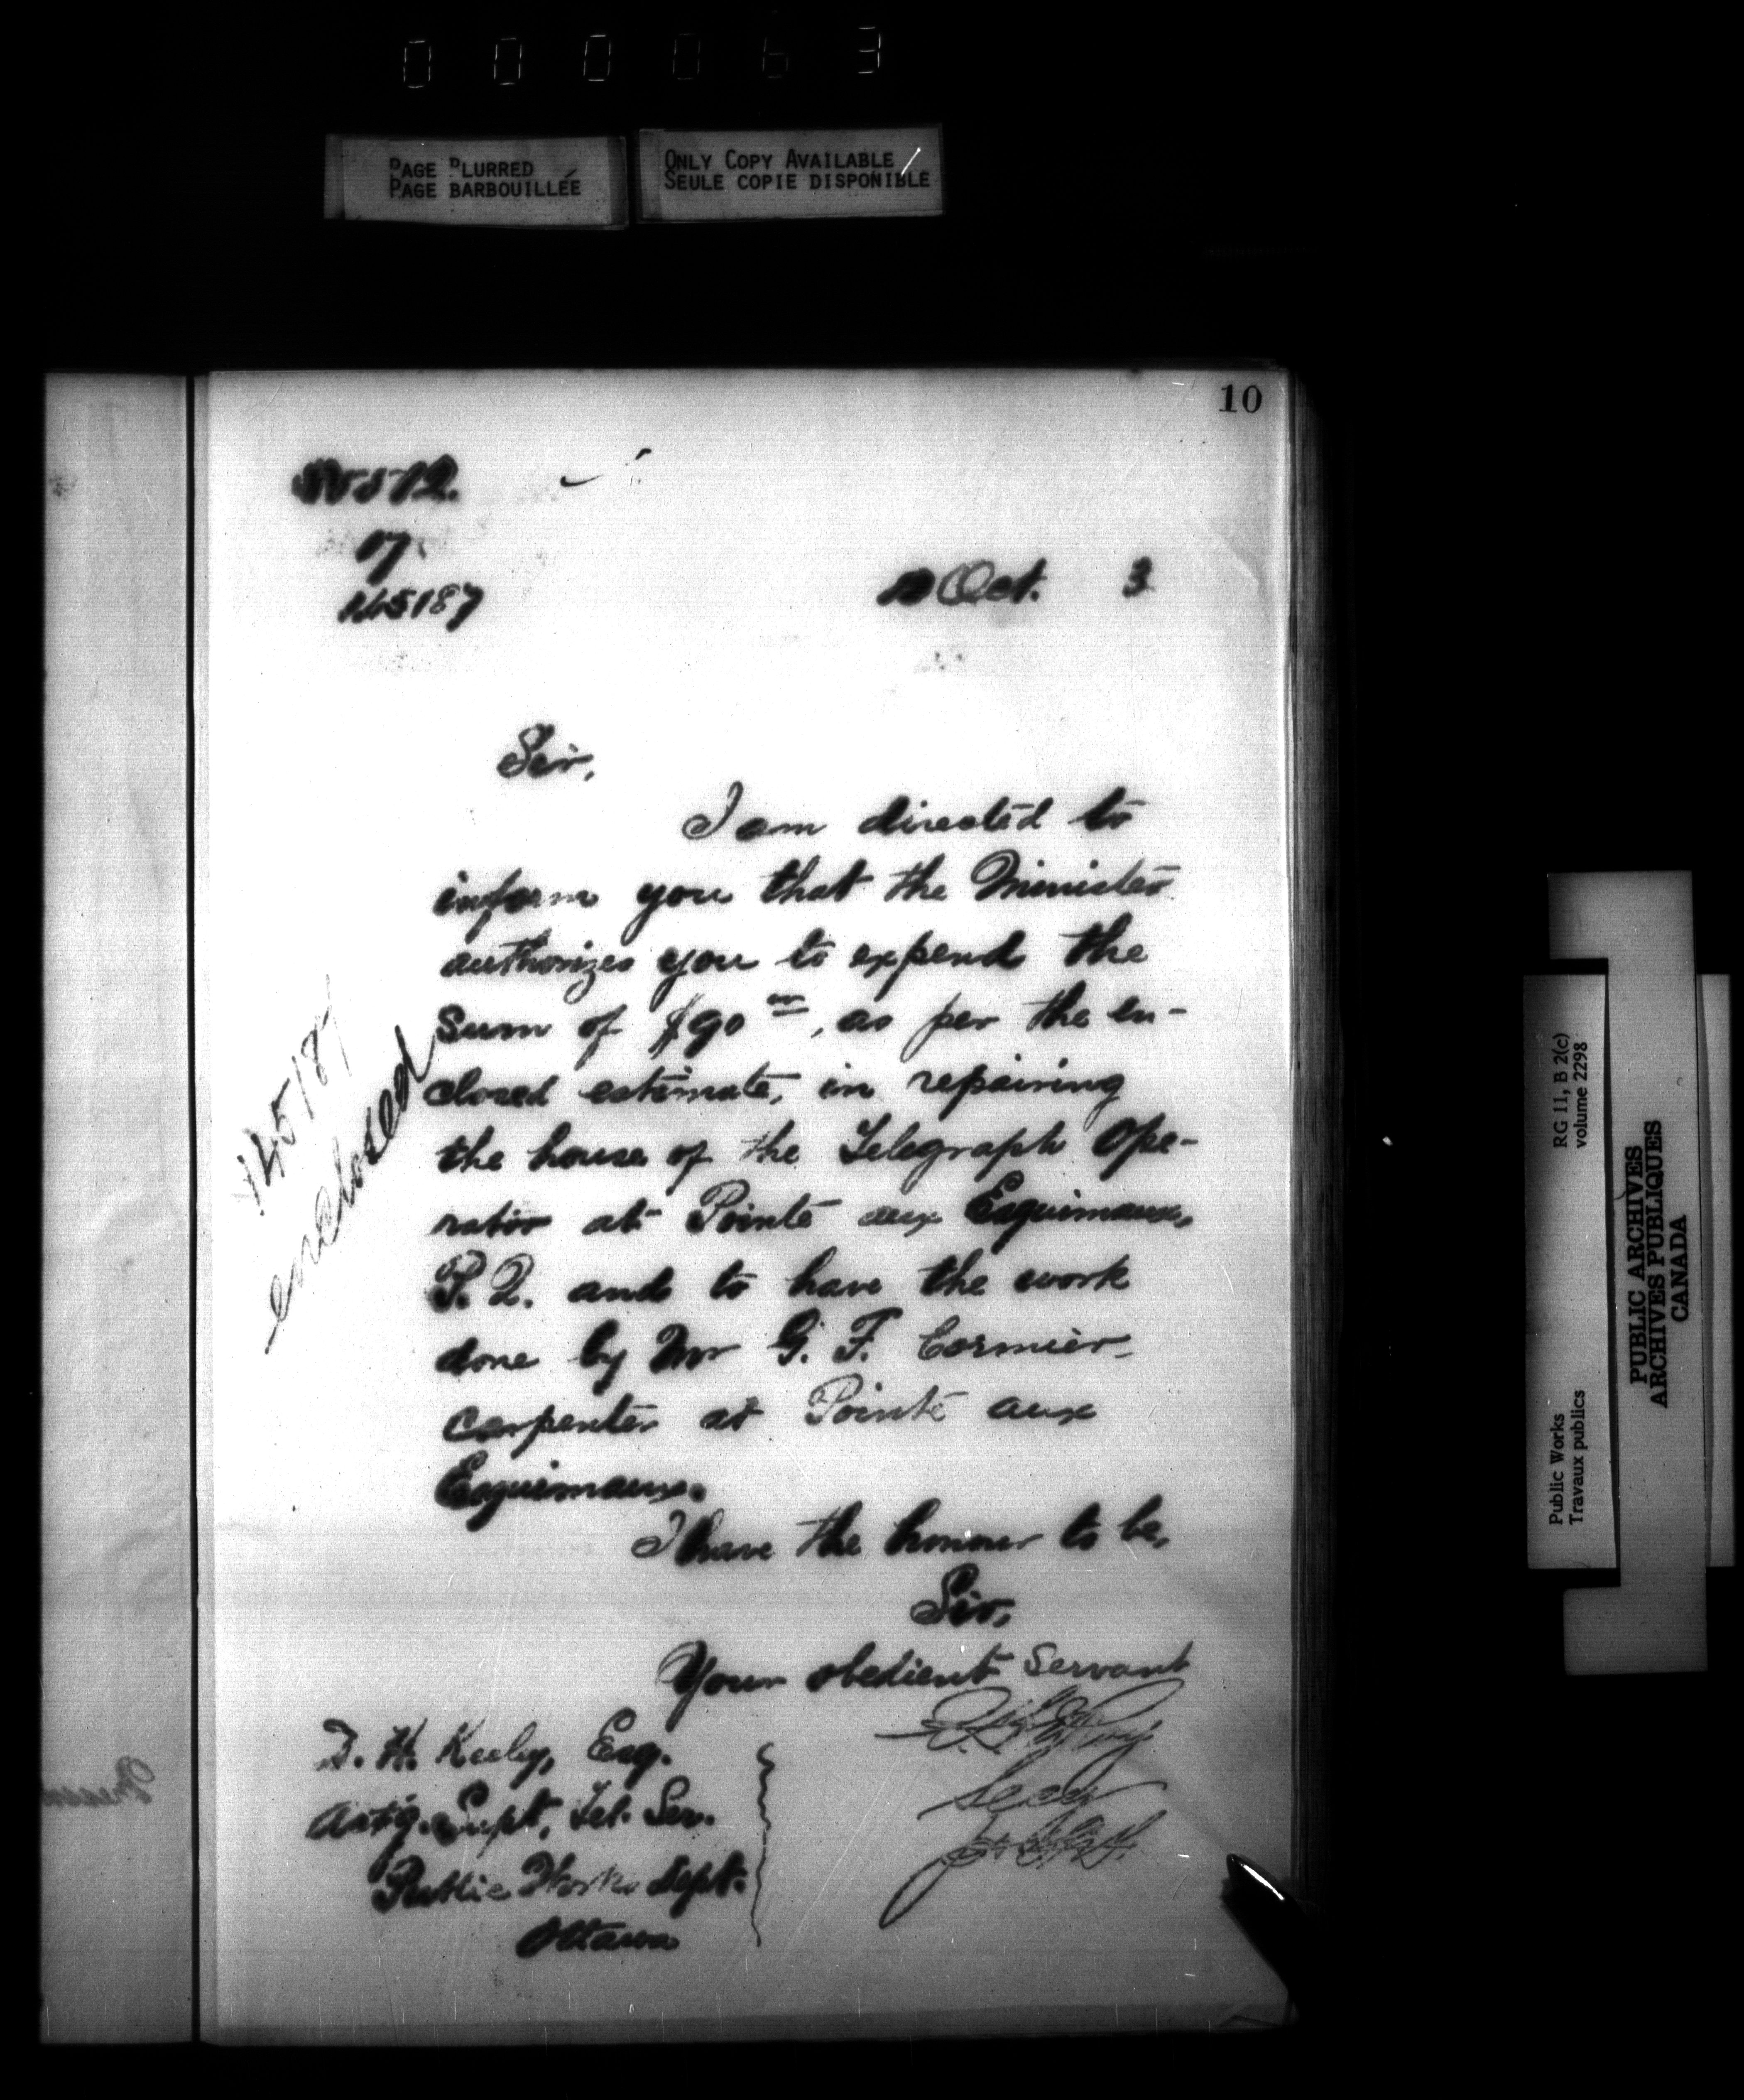 000063
PAGE BLURRED
PAGE BARBOUILLÉE
ONLY COPY AVAILABLE
SEULE COPIE DISPONIBLE
10
17
145187
Oct. 3
Sir,
I am directed to
inform you that the Minister
authorizes you to expend the
sum of $90 00, as per the en-
closed estimate, in repairing
the house of the Telegraph Ope-
rator at Pointe aux Esquimaux,
P. Q. and to have the work
done by Mr G. F. Cormier
carpenter at Pointe aux
Esquimaux.
I have the honour to be,
Sir,
Your obedient servant
145187
enclosed
D. H. Keeley, Esq.
Act'g. Supt. Tel. Ser.
Public Works Dept.
Ottawa
RG 11, B 2(c)
volume 2298
Public Works
Travaux publics
PUBLIC ARCHIVES
ARCHIVES PUBLIQUES
CANADA